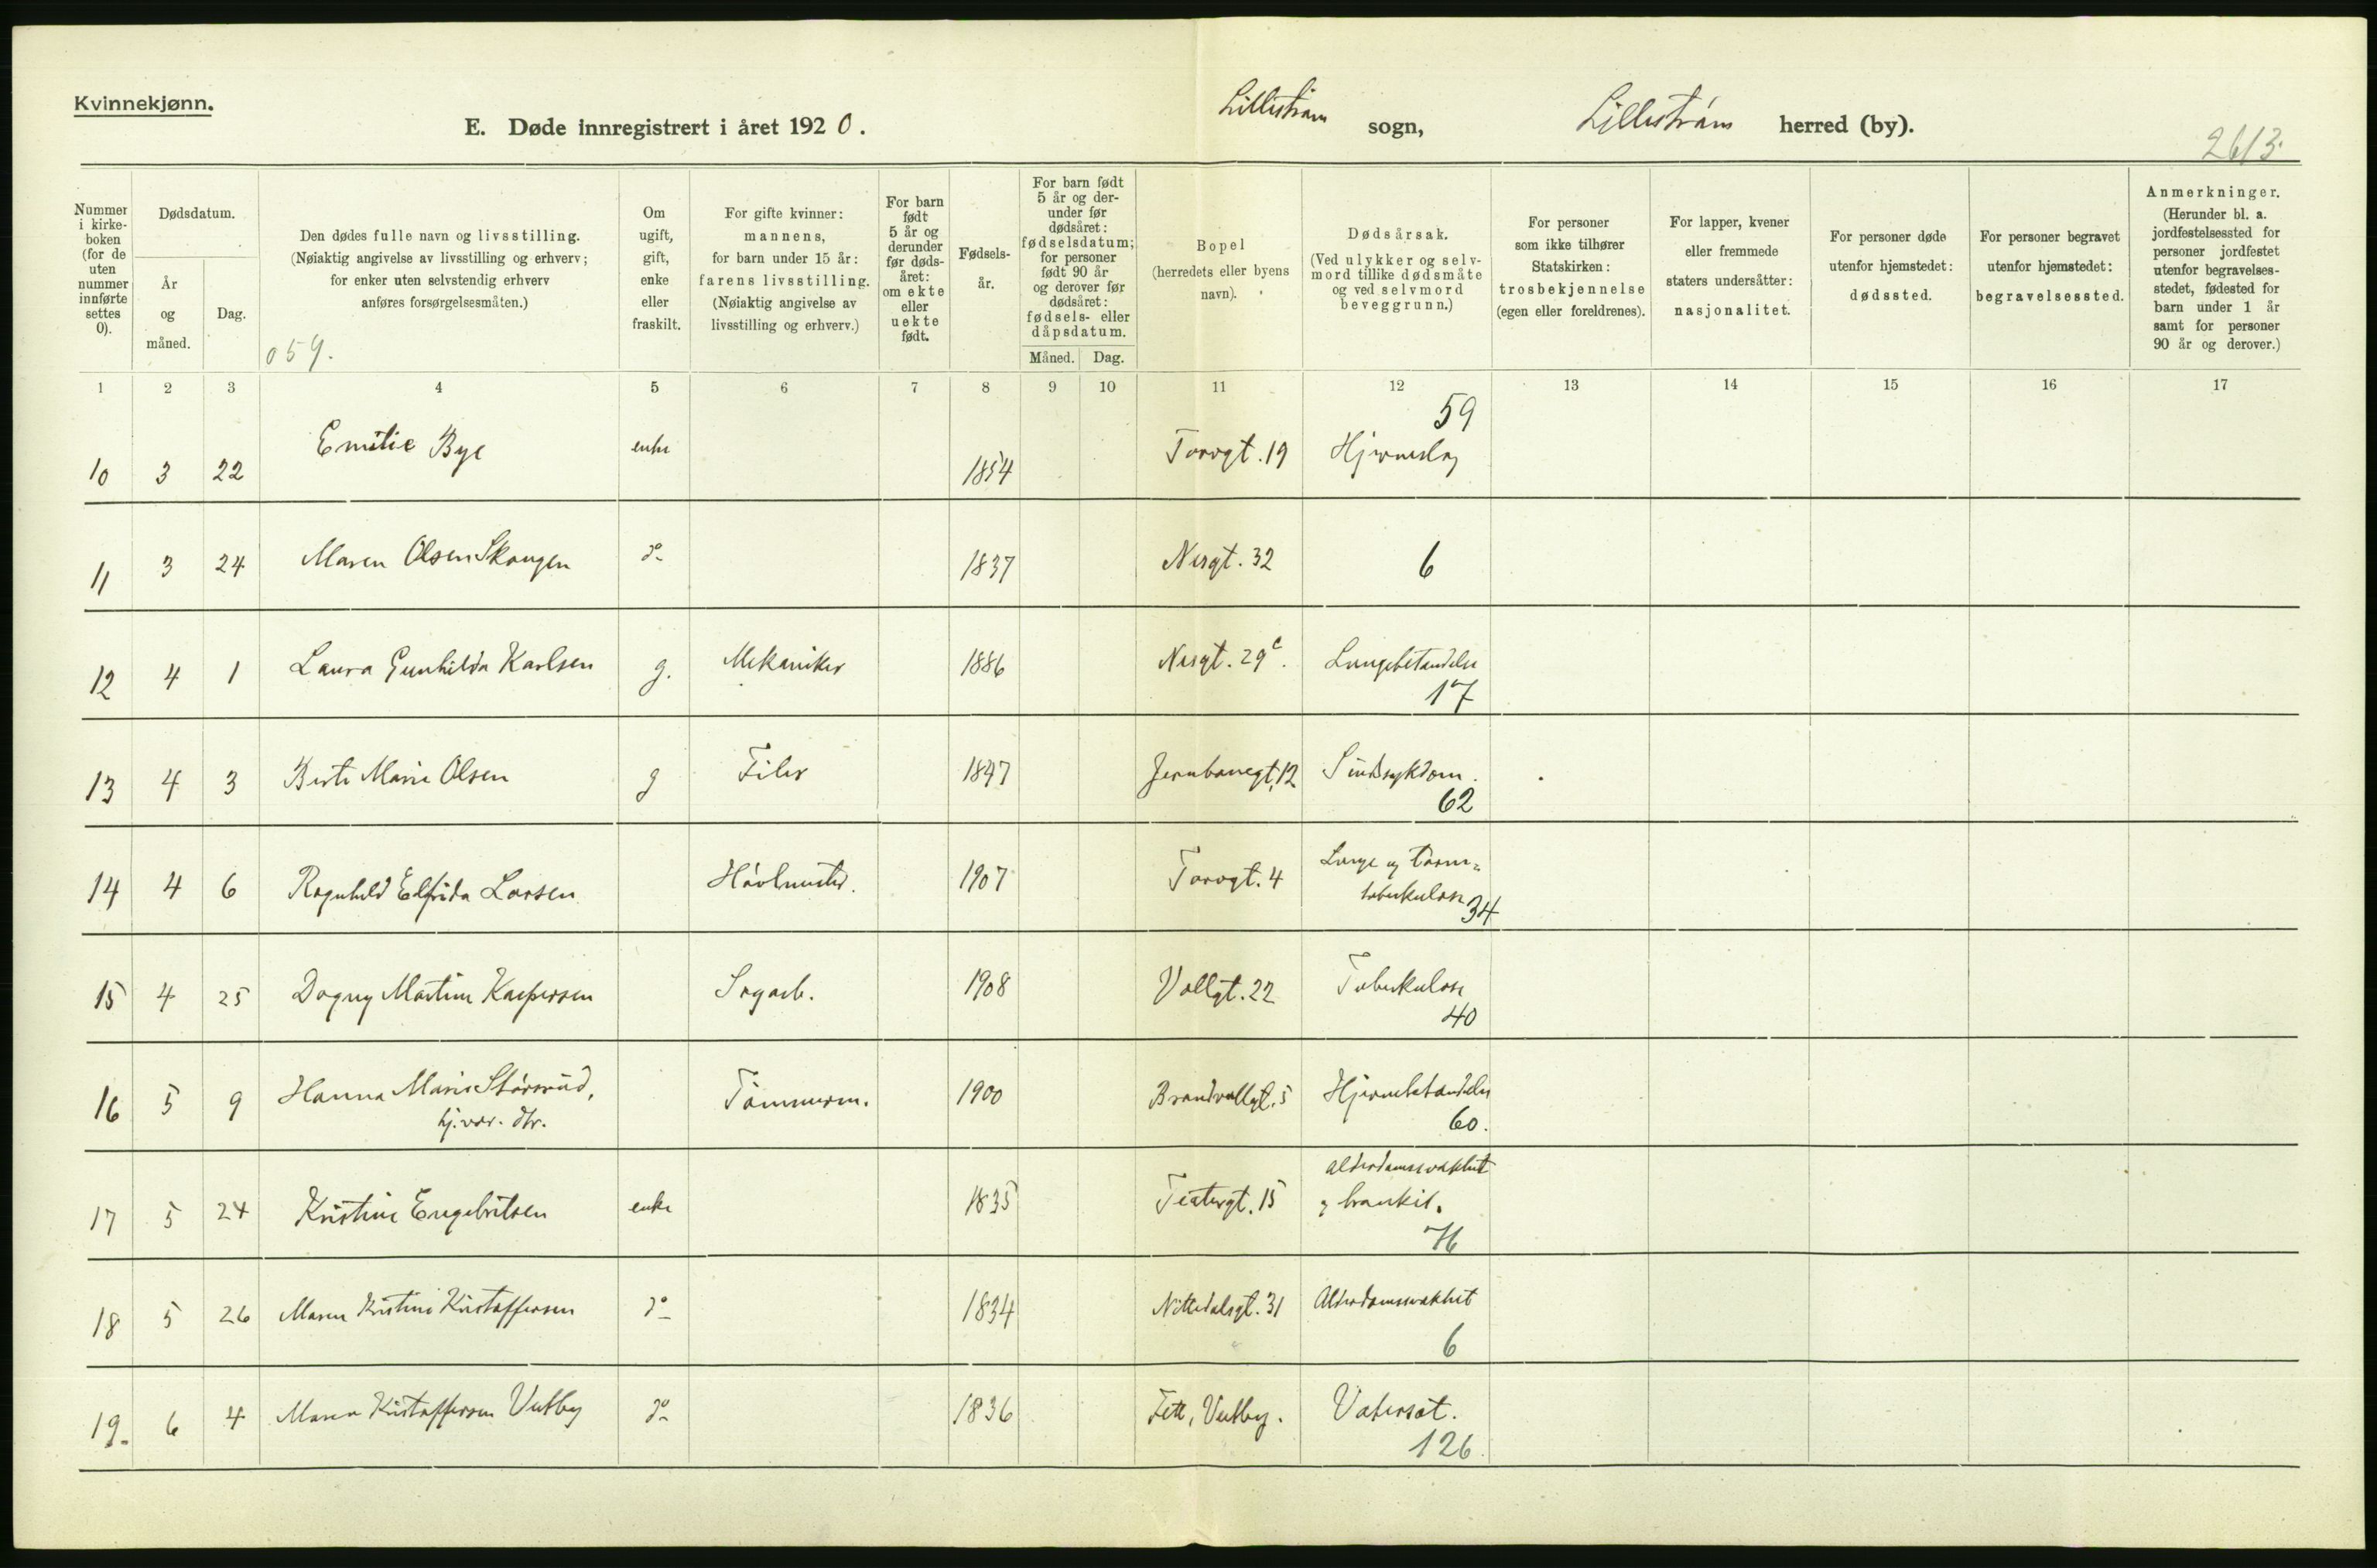 Kvinnekjønn.
E. Døde innregistrert i året 1920.
Lillestrøm sogn,
Lillestrøm herred (by).
2613.
Nummer i kirke-boken (for de uten nummer innførte settes 0).
Dødsdatum.
År og måned.
Dag.
Den dødes fulle navn og livsstilling.
(Nøiaktig angivelse av livsstilling og erhverv;
for enker uten selvstendig erhverv
anføres forsørgelsesmåten.)
059.
Om ugift, gift, enke eller fraskilt.
For gifte kvinner:
mannens,
for barn under 15 år:
farens livsstilling.
(Nøiaktig angivelse av
livsstilling og erhverv.)
For barn født 5 år og derunder før døds-året: om ekte eller uekte født.
Fødsels-år.
For barn født 5 år og der-under før dødsåret: fødselsdatum; for personer født 90 år og derover før dødsåret: fødsels- eller dåpsdatum.
Måned. Dag.
Bopel
(herredets eller byens
navn).
Dødsårsak.
(Ved ulykker og selv-
mord tillike dødsmåte
og ved selvmord
beveggrunn.)
For personer
som ikke tilhører
Statskirken:
trosbekjennelse
(egen eller foreldrenes).
For lapper, kvener
eller fremmede
staters undersåtter:
nasjonalitet.
For personer døde
utenfor hjemstedet:
dødssted.
For personer begravet
utenfor hjemstedet:
begravelsessted.
Anmerkninger.
(Herunder bl. a.
jordfestelsessted for
personer jordfestet
utenfor begravelses-
stedet, fødested for
barn under 1 år
samt for personer
90 år og derover.)
1 2 3 4 5 6 7 8 9 10 11 12 13 14 15 16 17
10 3 22 Emilie Bye enke 1854 Torvgt. 19 Hjerneslag 59
11 3 24 Maren Olsen Skaugen do 1837 Nergt. 32 6
12 4 1 Laura Gunhilda Karlsen g. Mekaniker 1886 Nergt. 29c. Lungebetændelse 17
13 4 3 Berte Marie Olsen g Filer 1847 Jernbanegt. 12 Sindssykdom. 62
14 4 6 Ragnhild Elfrida Larsen Høvlmester. 1907 Torvgt. 4 Lunge og tarm-
tuberkulose 34
15 4 25 Dagny Martine Kaspersen Sagarb. 1908 Vollgt. 22 Tuberkulose 40
16 5 9 Hanna Marie Størsrud, Tømmerm. 1900 Brandvallgt. 5 Hjernebetændelse
hj.vær. dtr. 60.
17 5 24 Kristine Engebritsen enke 1835 Teatergt. 15 Alderdomssvakhet
og bronkit.
18 5 26 Maren Kristine Kristoffersen do 1834 Nittedalsgt. 31 Alderdomssvakhet
6
19. 6 4 Maren Kristoffersen do 1836 Fett, Vatersot.
126.